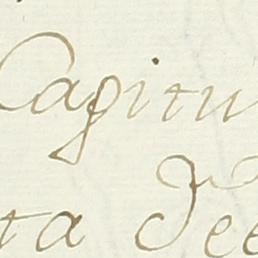 Capitu
ta de